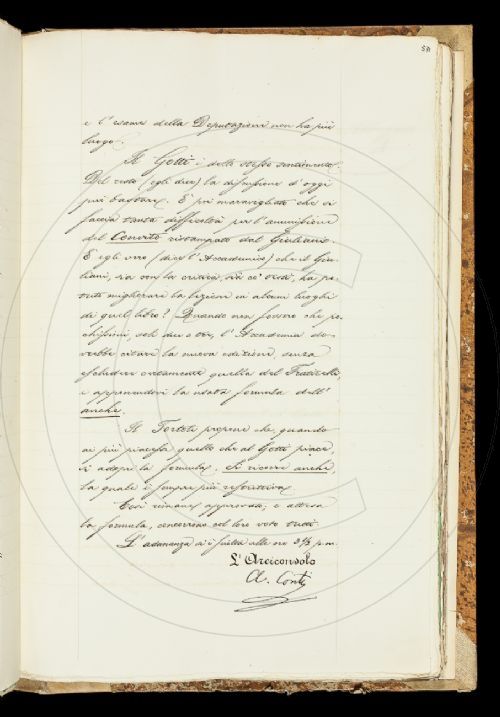 511
e l'esame della Deputazione non ha più
luogo.
Il Gotti è dello stesso sentimento.
Del resto (egli dice) la discussione d'oggi
può bastare. E poi maravigliato che si
faccia tanta difficoltà per l'ammissione
del Convito ristampato dal Giuliani.
È egli vero (dice l'Accademico) che il Giu-
liani, sia con la critica, sia co' testi, ha po-
tuto migliorare la lezione in alcuni luoghi
di quel libro? Quando non fossero che po-
chissimi, soli due o tre, l'Accademia do-
vrebbe citare la nuova edizione, senza
escludere certamente quella del Fraticelli,
e apponendovi la usata formula dell'
anche.
Il Tortoli propone che, quando
ai più piaccia quello che al Gotti piace,
si adopri la formula, Si ricorre anche,
la quale è sempre più restrittiva.
Così rimane approvato; e attesa
la formula, concorrono col loro voto tutti.
L'adunanza si è sciolta alle ore 3½ p.m.
L'Arciconsolo
A. Conti